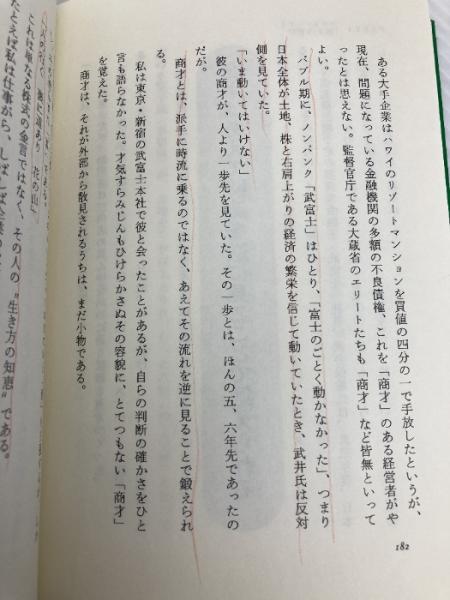 ある大手企業はハワイのリゾートマンションを買値の四分の一で手放したというが、
現在、問題になっている金融機関の多額の不良債権、これを「商才」のある経営者がや
ったとは思えない。監督官庁である大蔵省のエリートたちも「商才」など皆無といって
よい。
バブル期に、ノンバンク「武富士」はひとり、「富士のごとく動かなかった」、つまり
日本全体が土地、株と右肩上がりの経済の繁栄を信じて動いていたとき、武井氏は反対
側を見ていた。
「いま動いてはいけない」
彼の商才が、人より一歩先を見ていた。その一歩とは、ほんの五、六年先であったの
だが。
商才とは、派手に時流に乗るのではなく、あえてその流れを逆に見ることで鍛えられ
る。
私は東京・新宿の武富士本社で彼と会ったことがあるが、自らの判断の確かさをひと
言も語らなかった。才気すらみじんもひけらかさぬその容貌に、とてつもない「商才」
を覚えた。
「商才は、それが外部から散見されるうちは、まだ小物である。
182
道あり 花の山」
これは単なる株道の金言ではなく、その人の〝生き方の知恵〟である。
たとえば私は仕事がら、しばしば